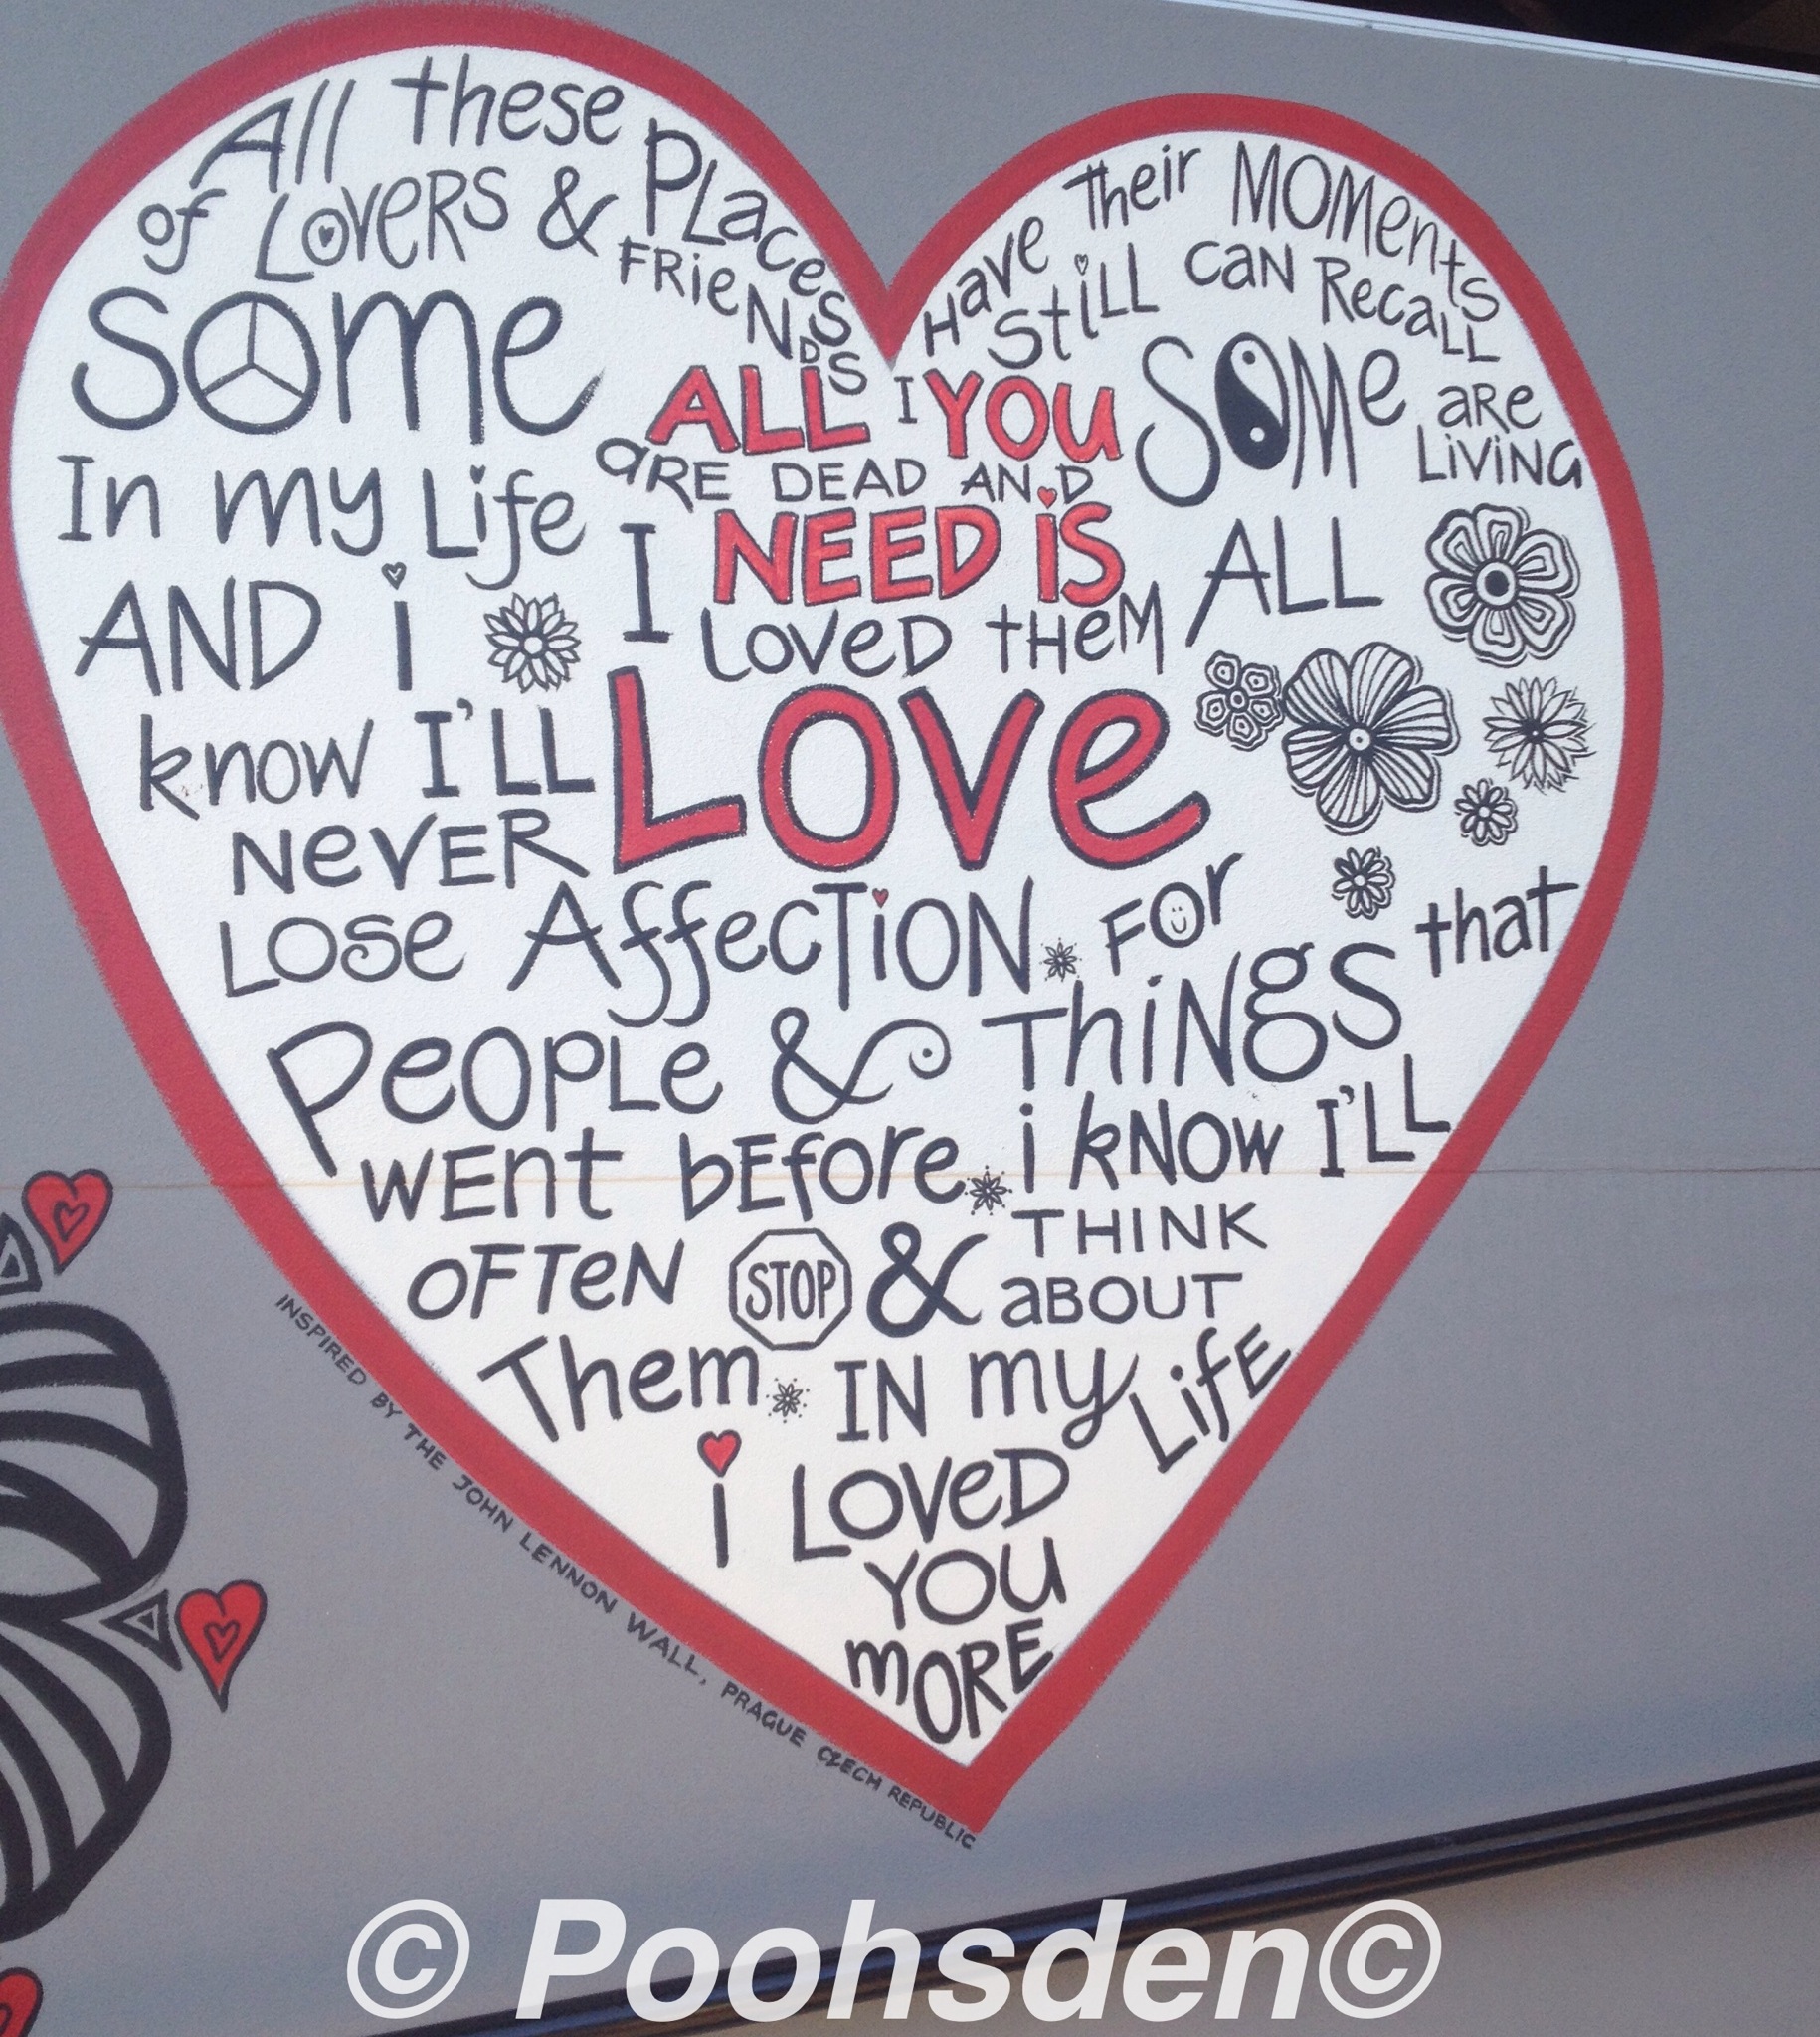 All these Places Have their MOMents
of LOVERS & FRIENDS I Still CAN RecaLL
SOme are DEAD AND SOMe are LiViNG
In my Life I LOVeD tHeM ALL
ALL YOU
NEED iS
LOVe
AND i
know I'LL
NeVER
LOSe AffecTiON FOr
PeOPLe & ThiNgS that
WEnt bEfore i kNOW I'LL
OFTeN STOP & THINK
aBOUT
Them IN my LifE
i LOVeD
YOU
mORE
INSPIRED BY THE JOHN LENNON WALL, PRAGUE CZECH REPUBLIC
© Poohsden©